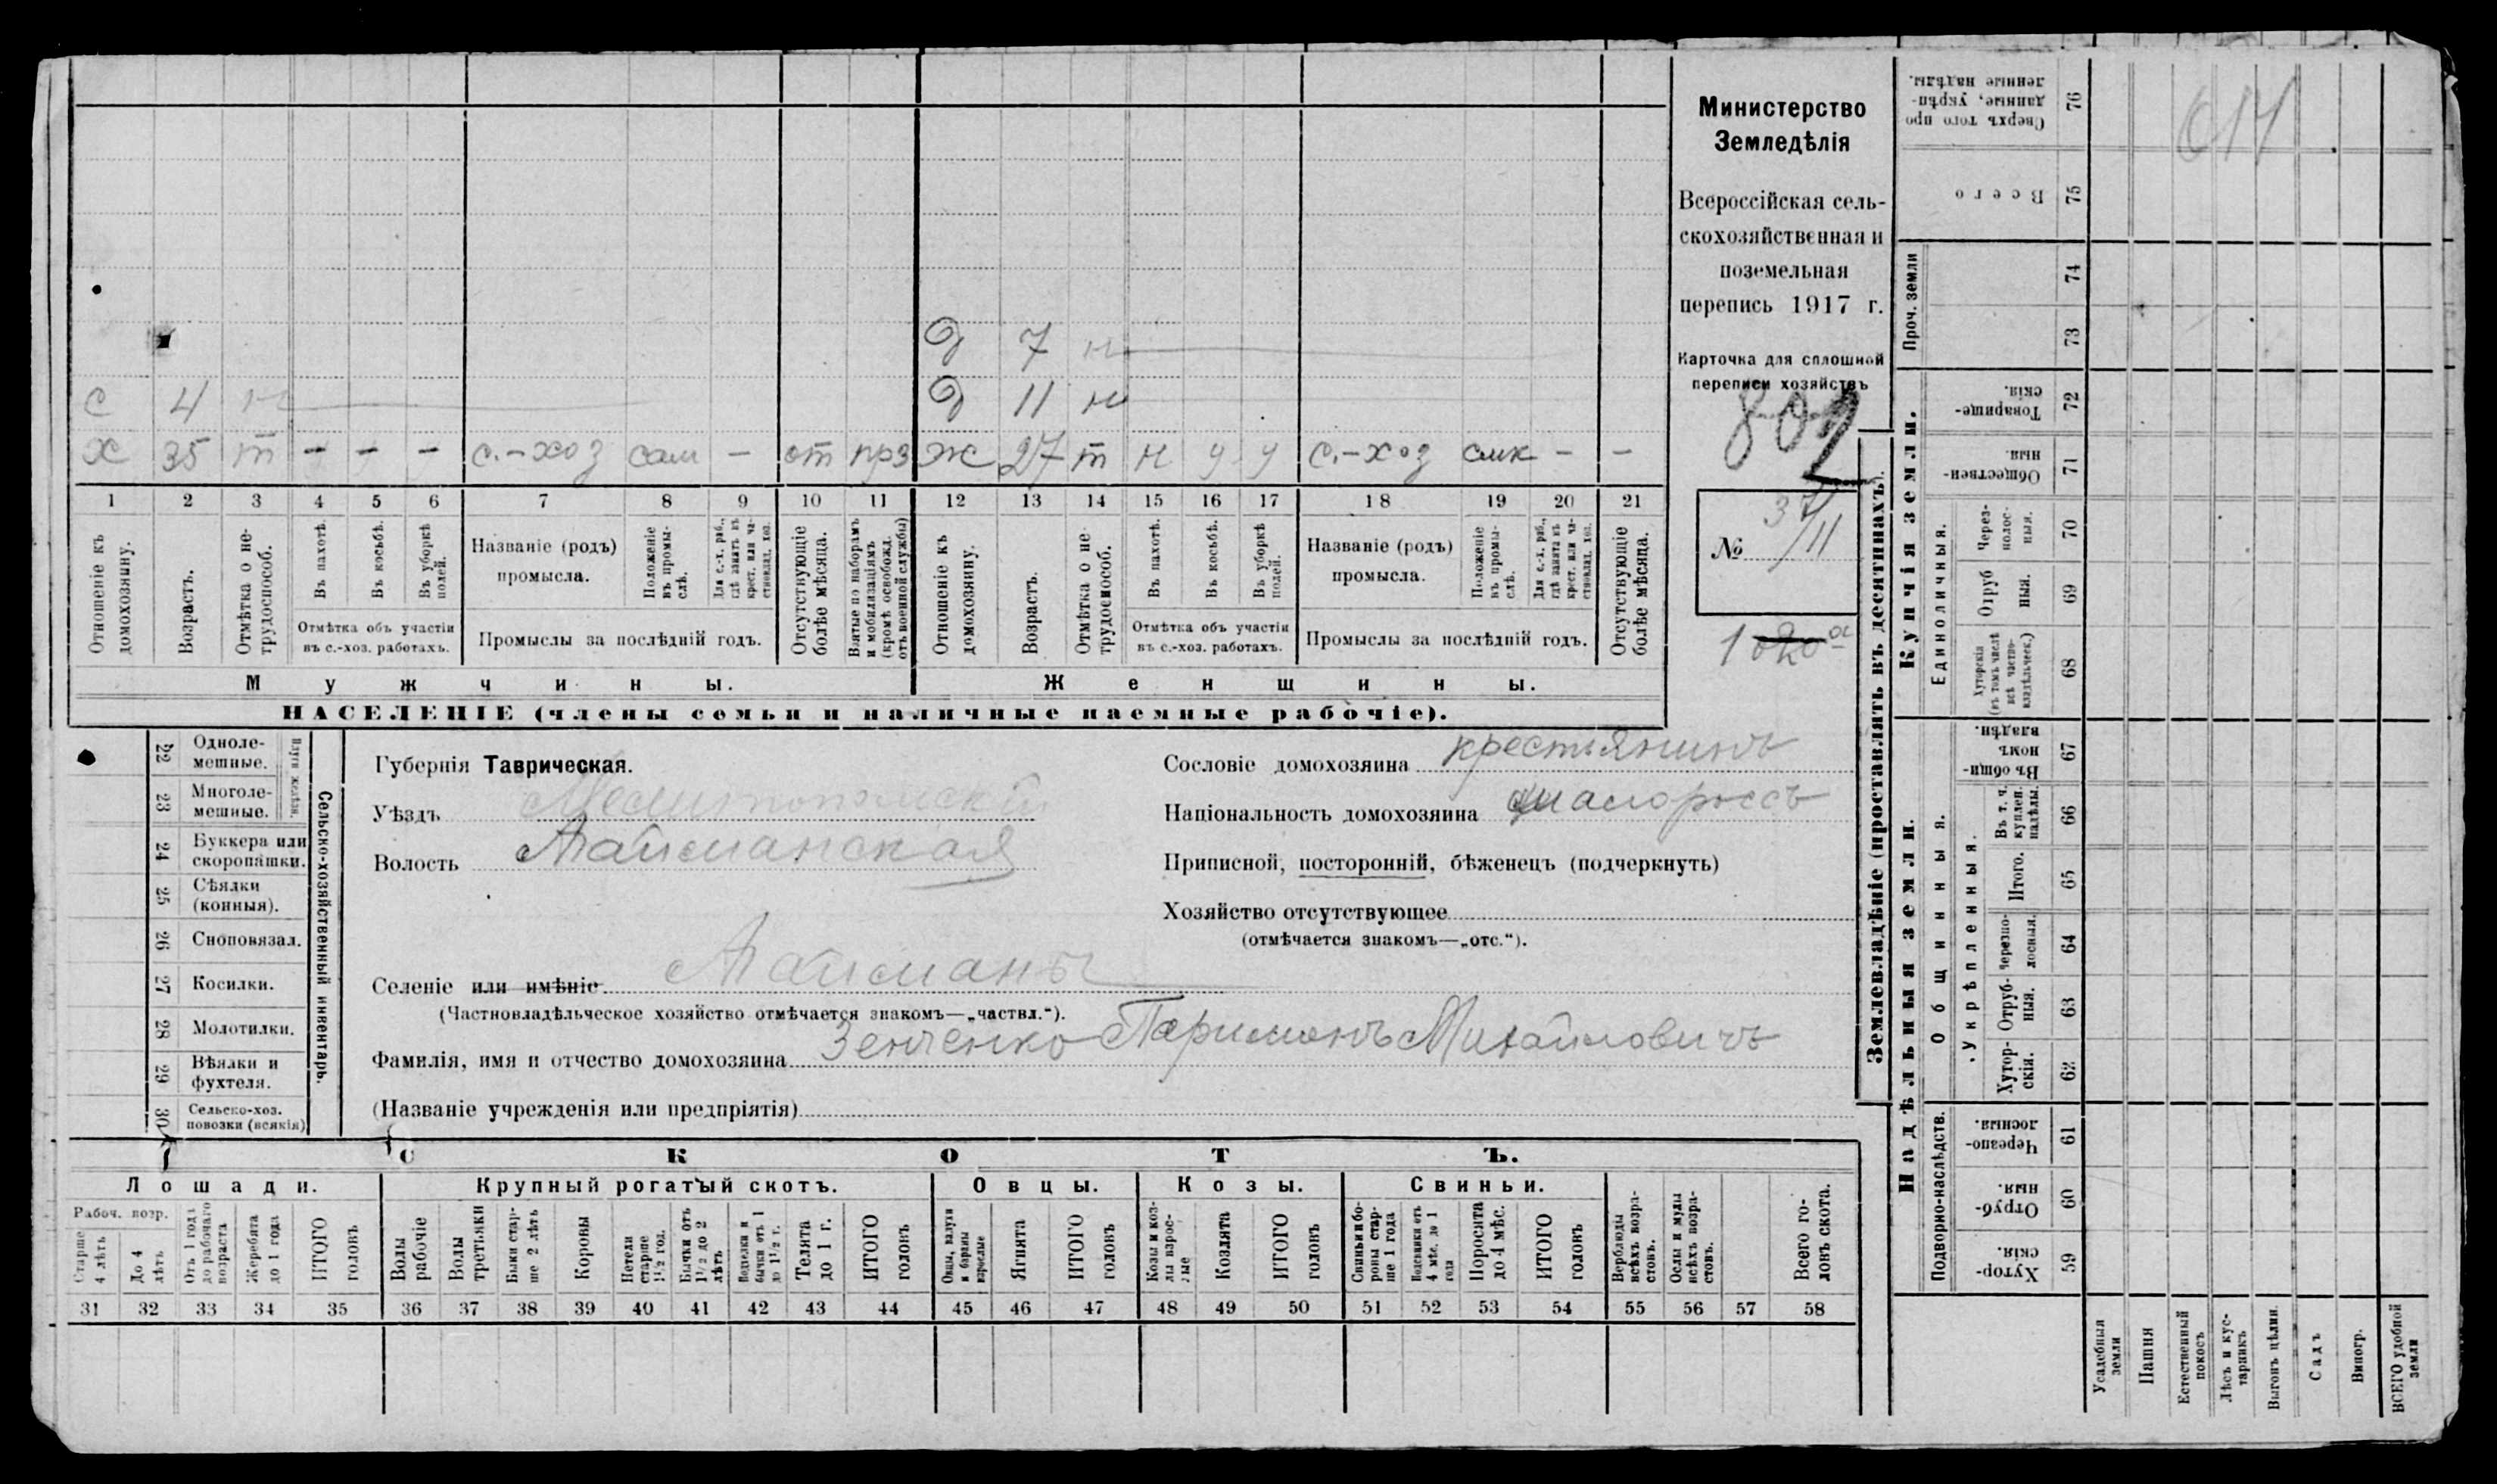 Д 7 н
С 4 н Д 11 н
Х 35 т - - - с.-хоз сам - от прз Ж 27 т н у у с.-хоз смк - -
1 2 3 4 5 6 7 8 9 10 11 12 13 14 15 16 17 18 19 20 21
Отношеніе къ домохозяину.
Возрастъ.
Отмѣтка о не-трудоспособ.
Въ пахотѣ.
Въ косьбѣ.
Въ уборкѣ полей.
Отмѣтка объ участіи
въ с.-хоз. работахъ.
Названіе (родъ)
промысла.
Положеніе въ промы-слѣ.
Для с.-х. раб., гдѣ занятъ въ крест. или ча-стновлад. хоз.
Промыслы за послѣдній годъ.
Отсутствующіе болѣе мѣсяца.
Взятые по наборамъ и мобилизаціямъ (кромѣ освобожд. отъ военной службы)
Отношеніе къ домохозяину.
Возрастъ.
Отмѣтка о не трудоспособ.
Въ пахотѣ.
Въ косьбѣ.
Въ уборкѣ полей.
Отмѣтка объ участіи
въ с.-хоз. работахъ.
Названіе (родъ)
промысла.
Положеніе въ промы-слѣ.
Для с.-х. раб., гдѣ занята въ крест. или ча-стновлад. хоз.
Промыслы за послѣдній годъ.
Отсутствующіе болѣе мѣсяца.
Мужчины. Женщины.
НАСЕЛЕНІЕ (члены семьи и наличные наемные рабочіе).
Министерство
Земледѣлія
Всероссійская сель-
скохозяйственная и
поземельная
перепись 1917 г.
Карточка для сплошной
переписи хозяйствъ
802
№ 37/11
22 Одноле-мешные.
23 Многоле-мешные.
Плуги желѣзн.
24 Буккера или скоропашки.
25 Сѣялки (конныя).
26 Сноповязал.
27 Косилки.
28 Молотилки.
29 Вѣялки и фухтеля.
30 Сельско-хоз. повозки (всякія)
Сельско-хозяйственный инвентарь.
Губернія Таврическая.
Уѣздъ Мелитопольскій
Волость Тайманская
Сословіе домохозяина крестьянинъ
Національность домохозяина малороссъ
Приписной, посторонній, бѣженецъ (подчеркнуть)
Хозяйство отсутствующее
(отмѣчается знакомъ—„отс.“).
Селеніе или имѣніе Тайманы
(Частновладѣльческое хозяйство отмѣчается знакомъ—„частвл.“).
Фамилія, имя и отчество домохозяина Зенченко Паримонъ Михайловичъ
(Названіе учрежденія или предпріятія)
СКОТЪ.
Лошади. Крупный рогатый скотъ. Овцы. Козы. Свиньи.
Рабоч. возр.
Старше 4 лѣтъ
До 4 лѣтъ
Отъ 1 года до рабочаго возраста
Жеребята до 1 года
ИТОГО головъ
Волы рабочіе
Волы третьяки
Быки стар-ше 2 лѣтъ
Коровы
Нетели старше 1½ год.
Бычки отъ 1½ до 2 лѣтъ
Телки и бычки отъ 1 до 1½ г.
Телята до 1 г.
ИТОГО головъ
Овцы, валухи и бараны взрослые
Ягнята
ИТОГО головъ
Козы и коз-лы взрос-лые
Козлята
ИТОГО головъ
Свиньи и бо-ровы стар-ше 1 года
Подсвинки отъ 4 мѣс. до 1 года
Поросята до 4 мѣс.
ИТОГО головъ
Верблюды всѣхъ возра-стовъ.
Ослы и мулы всѣхъ возра-стовъ.
Всего го-ловъ скота.
31 32 33 34 35 36 37 38 39 40 41 42 43 44 45 46 47 48 49 50 51 52 53 54 55 56 57 58
Землевладѣніе (проставлять въ десятинахъ).
614
Сверхъ того про данные, укрѣп-ленные надѣлы. 76
Всего 75
Проч. земли 74 73
Купчія земли.
Товарище-скія. 72
Обществен-ныя. 71
Единоличныя.
Через-полос-ныя. 70
Отруб ныя. 69
Хуторскія (въ томъ числѣ всѣ частно-владѣльческ.) 68
Надѣльныя земли.
Общинныя.
Въ общи-номъ владѣн. 67
Укрѣпленныя.
Въ т. ч. куплен. надѣлы. 66
Итого. 65
Черезпо-лосныя. 64
Отруб-ныя. 63
Хутор-скія. 62
Подворно-наслѣдств.
Черезпо-лосныя. 61
Отруб-ныя. 60
Хутор-скія. 59
Усадебныя земли
Пашня
Естественный покосъ
Лѣсъ и кус-тарникъ
Выгонъ цѣлин.
Садъ
Виногр.
ВСЕГО удобной земли